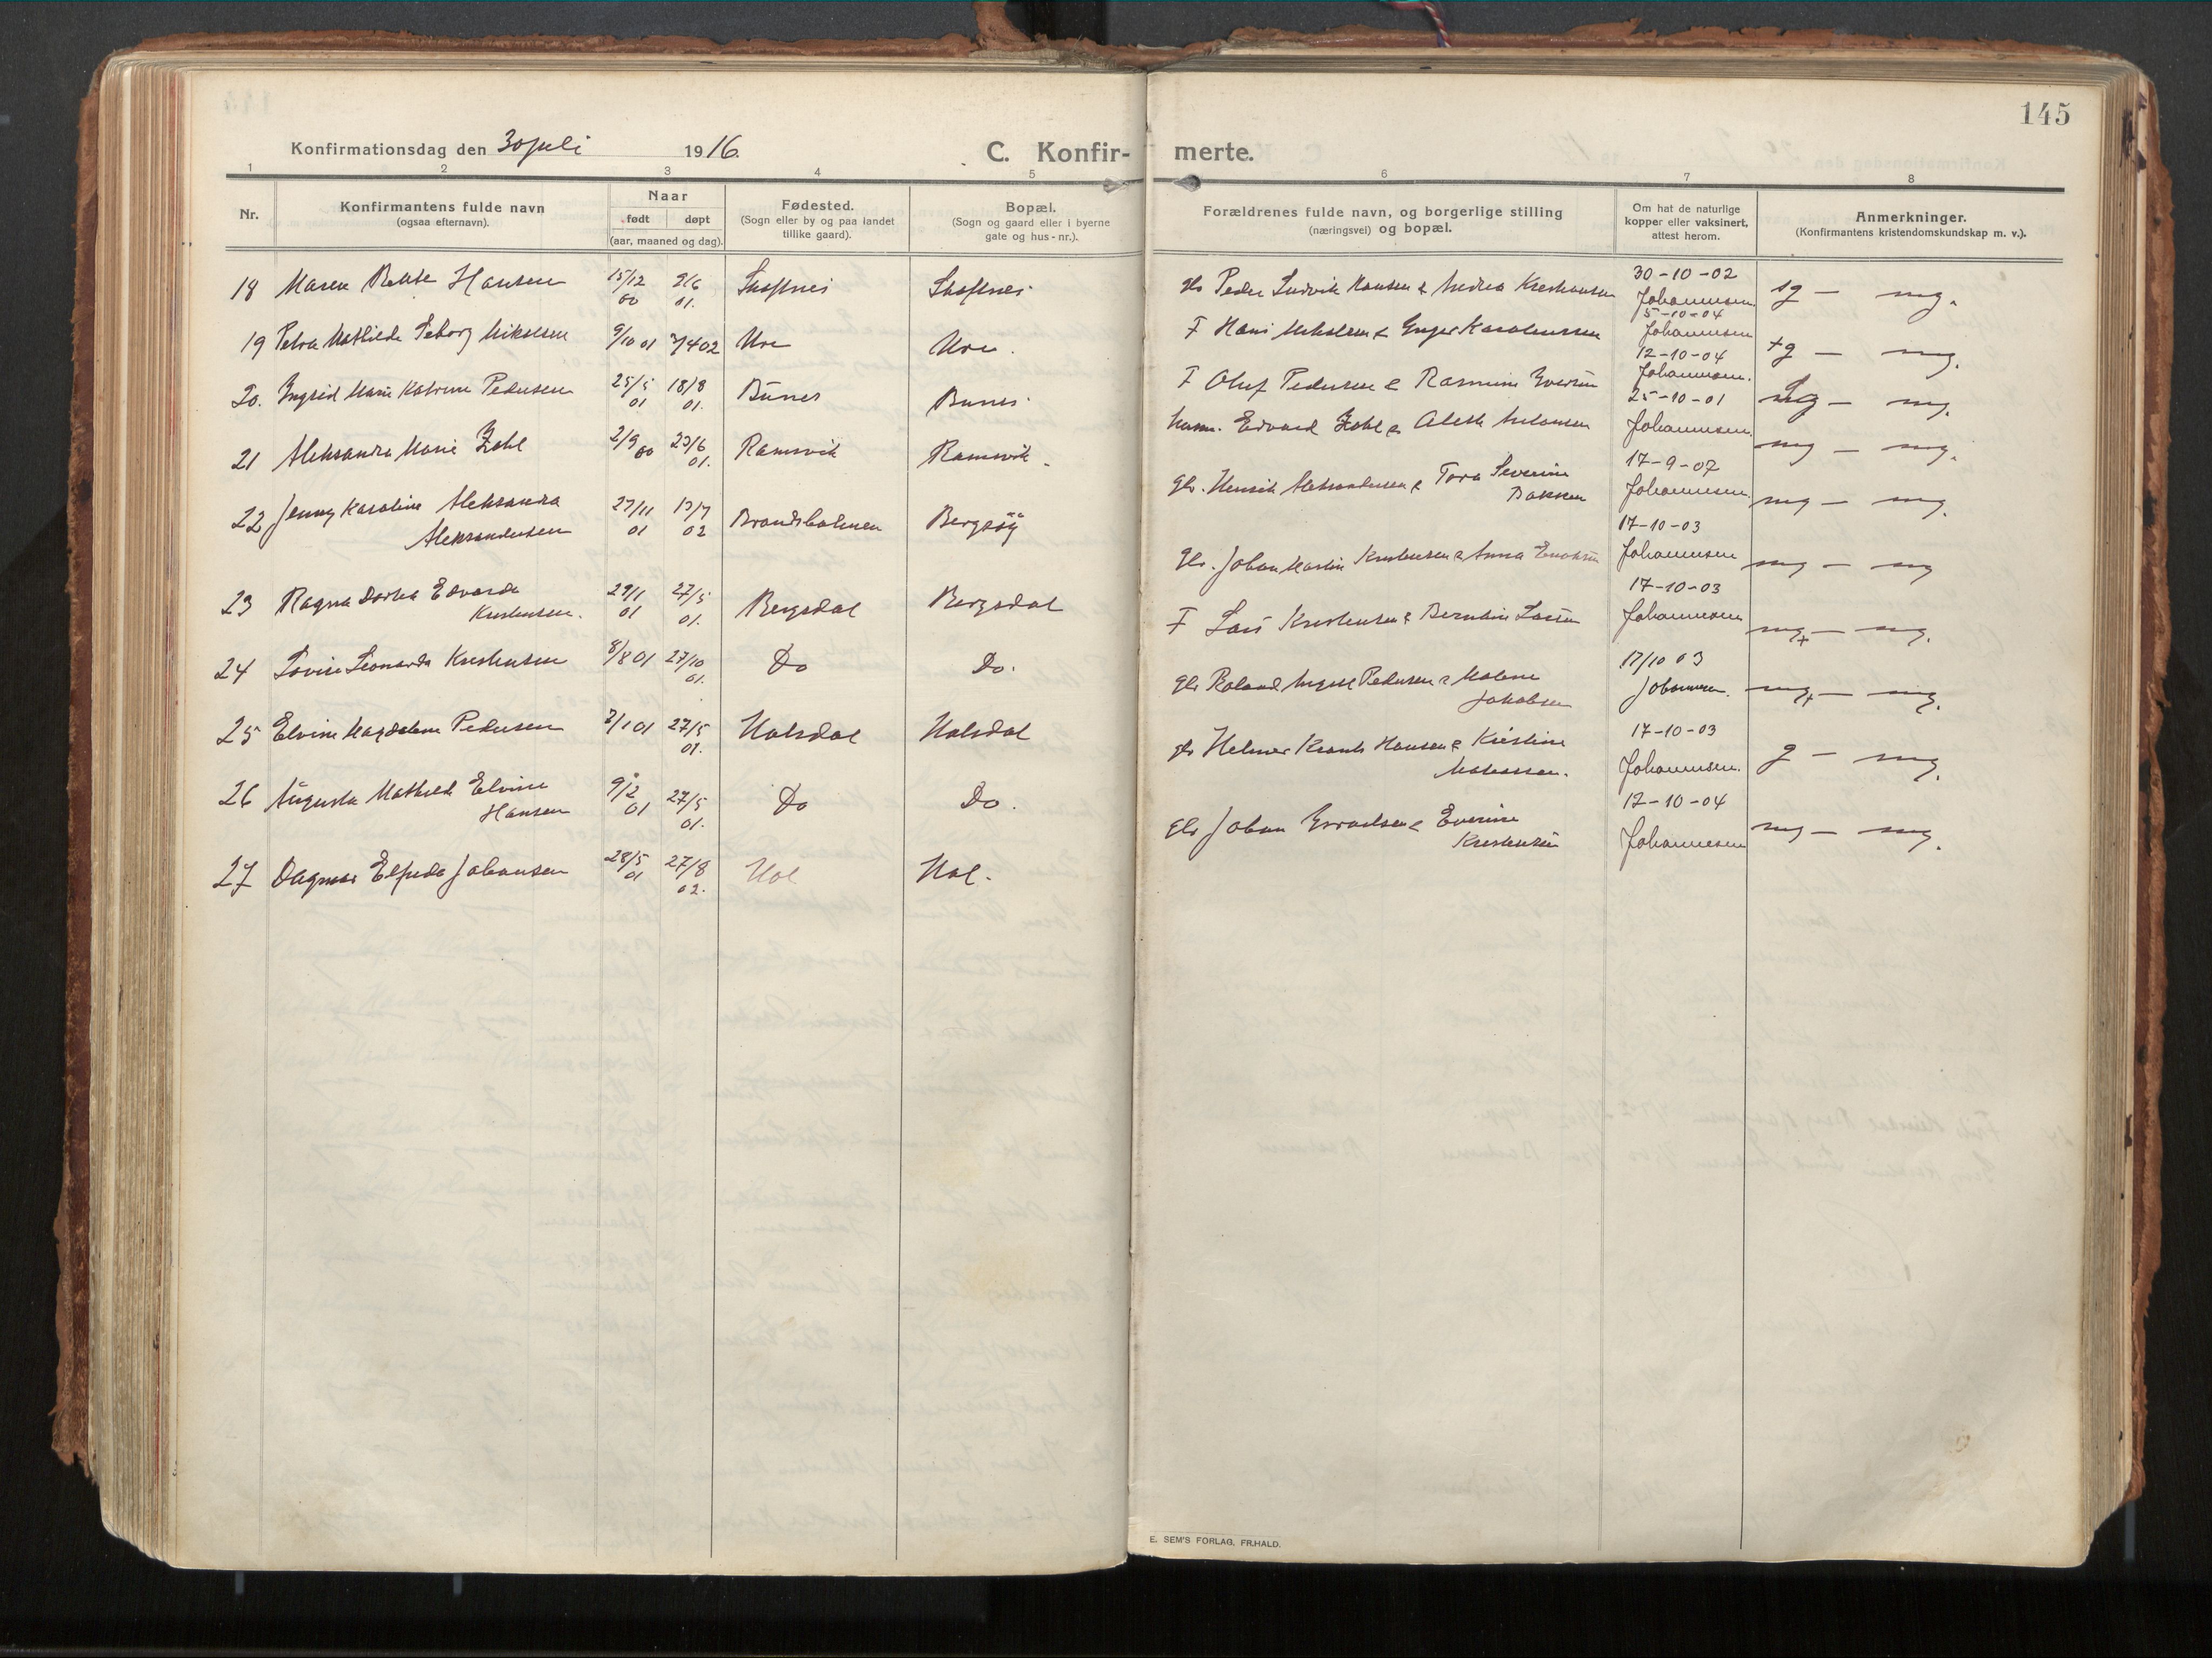 145
Konfirmationsdag den 30 juli 1916.
C. Konfir- merte.
1 2 3 4 5 6 7 8
Nr.
Konfirmantens fulde navn
(ogsaa efternavn).
Naar
født døpt
(aar, maaned og dag).
Fødested.
(Sogn eller by og paa landet
tillike gaard).
Bopæl.
(Sogn og gaard eller i byerne
gate og hus-nr.).
Forældrenes fulde navn, og borgerlige stilling
(næringsvei) og bopæl.
Om hat de naturlige
kopper eller vaksinert,
attest herom.
Anmerkninger.
(Konfirmantens kristendomskundskap m. v.).
18 Maren Hansen 15/12 00 9/6 01. Peder Ludvik Hansen & Andrea 30-10-02 Johannesen g — mg.
19 Petra Mathilde Nikolsen 9/10 01 7/4 02 Ure Ure. F Hans & Inger 5-10-04 Johannesen g — mg.
20. Ingrid Marie Katrine Pedersen 25/5 01 18/8 01. Bunes Bunes. F Oluf Pedersen & Rasmine 12-10-04 Johannesen. — mg.
21 Aleksandra Marie Zahl 2/9 00 23/6 01. Ramsvik Ramsvik. Edvard Zahl & 25-10-01 Johannesen. mg — mg.
22 Jenny Karoline Aleksandra
Aleksandersen 27/11 01 13/7 02 Brandsholmen Bergsöy Henrik Aleksandersen & Tora Severine 17-9-07 Johannesen. mg — mg.
23 Ragna Dortea Edvarda
Kristensen. 29/1 01 27/5 01. Bergsdal Bergsdal Johan Martin Kristensen & Anna 17-10-03 Johannesen mg — mg
24 Lovise Leonarda Kristensen 8/8 01 27/10 01. Do Do. F Lars Kristensen & 17-10-03 Johannesen mg+ — mg.
25 Elvine Magdalene Pedersen 3/1 01 27/5 01. Halsdal Halsdal Roland Pedersen & Malene
Jakobsen 17/10 03 Johannesen. mg+ — mg.
26 Augusta Mathilde Elvine
Hansen 9/2 01 27/5 01. Do Do. Helmer Hansen & Kristine 17-10-03 Johannesen. g — mg.
27 Dagmar Elfrida Johansen 28/5 01 27/8 02. Hol Hol. Johan & Everine
Kristensen 12-10-04 Johannesen mg — mg.
E. SEM'S FORLAG, FR.HALD.